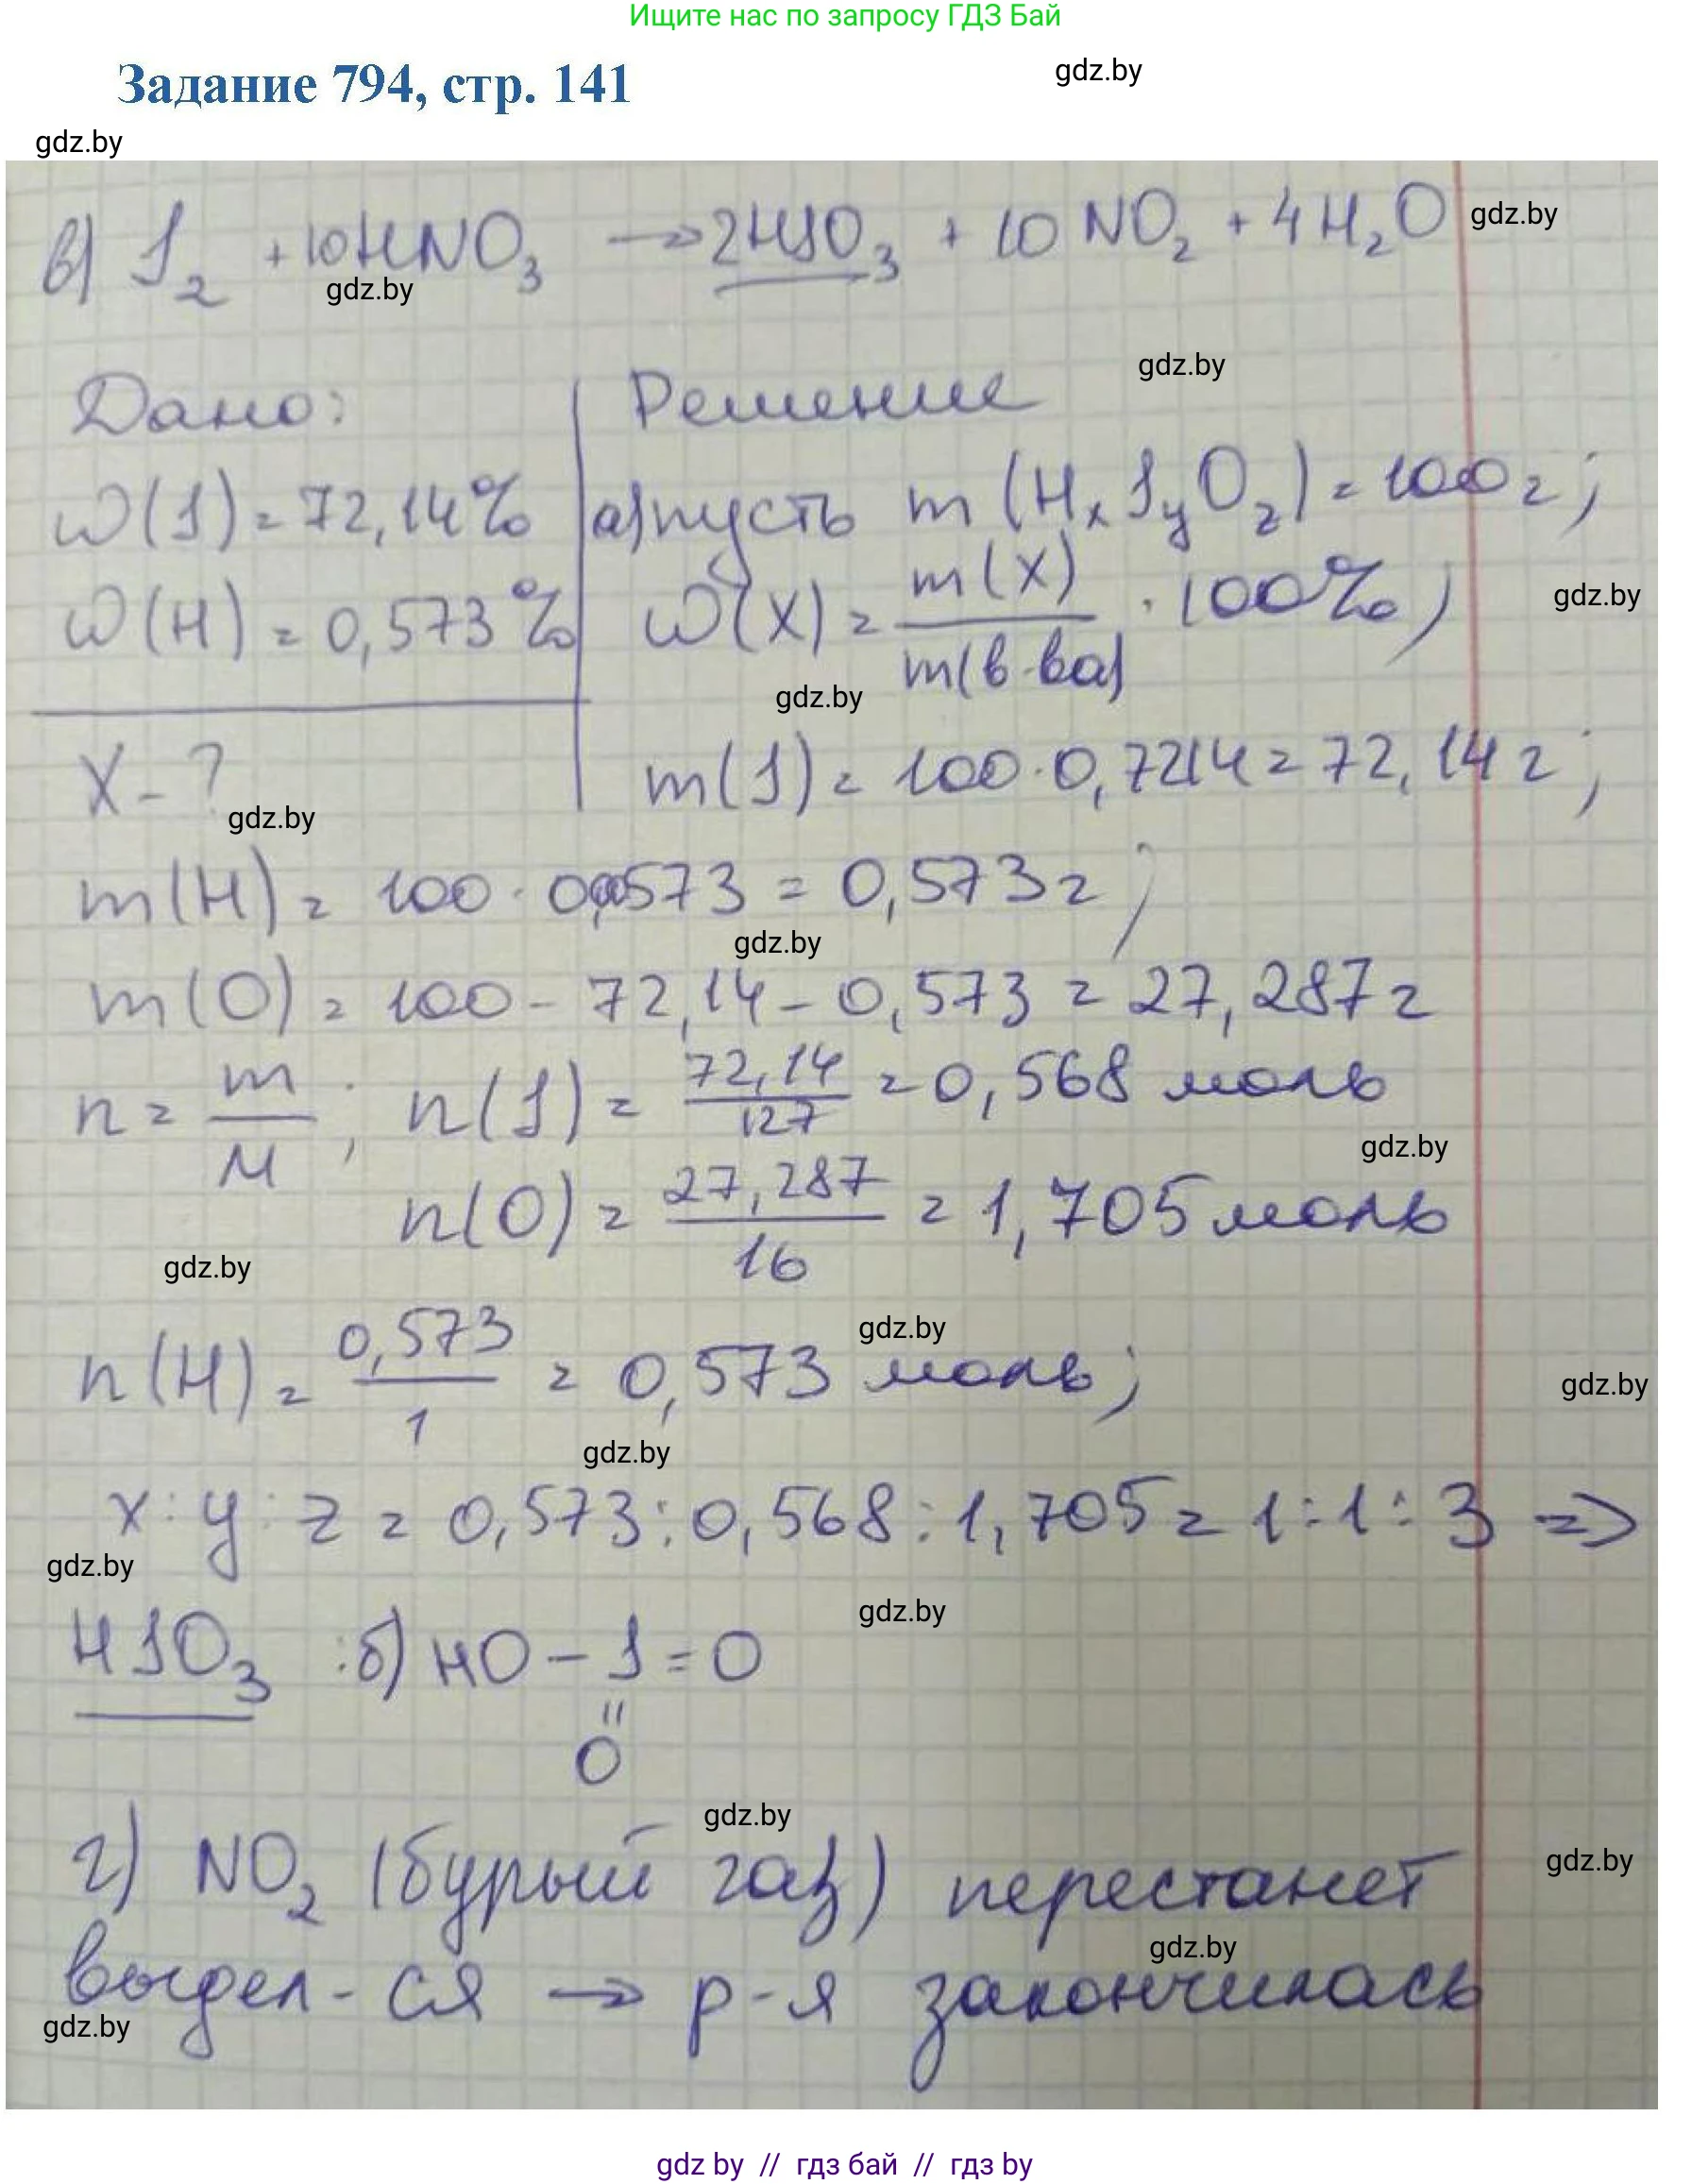 Ищите нас по запросу ГДЗ Бай
Задание 794, стр. 141
gdz.by
gdz.by
в) J₂ + 10HNO₃ → 2HJO₃ + 10NO₂ + 4H₂O
gdz.by
gdz.by
gdz.by
Дано: Решение
ω(J) = 72,14% а) пусть m(HₓJᵧO_z) = 100 г;
ω(H) = 0,573% ω(X) = m(X)/m(в-ва) · 100%;
gdz.by
gdz.by
X - ? m(J) = 100 · 0,7214 = 72,14 г;
gdz.by
m(H) = 100 · 0,00573 = 0,573 г;
gdz.by
m(O) = 100 - 72,14 - 0,573 = 27,287 г
n = m/M; n(J) = 72,14/127 = 0,568 моль
gdz.by
n(O) = 27,287/16 = 1,705 моль
gdz.by
gdz.by
n(H) = 0,573/1 = 0,573 моль;
gdz.by
gdz.by
x : y : z = 0,573 : 0,568 : 1,705 = 1 : 1 : 3 =>
gdz.by
gdz.by
HJO₃ : б) HO - J = O
=
O
gdz.by
г) NO₂ (бурый газ) перестанет
gdz.by
gdz.by
выдел-ся → р-я закончилась
gdz.by
gdz by // гдз бай // гдз by